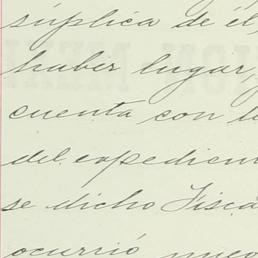 súplica de él,
haber lugar,
cuenta con l
del expedien
se dicho Fisca
ocurrió nuev